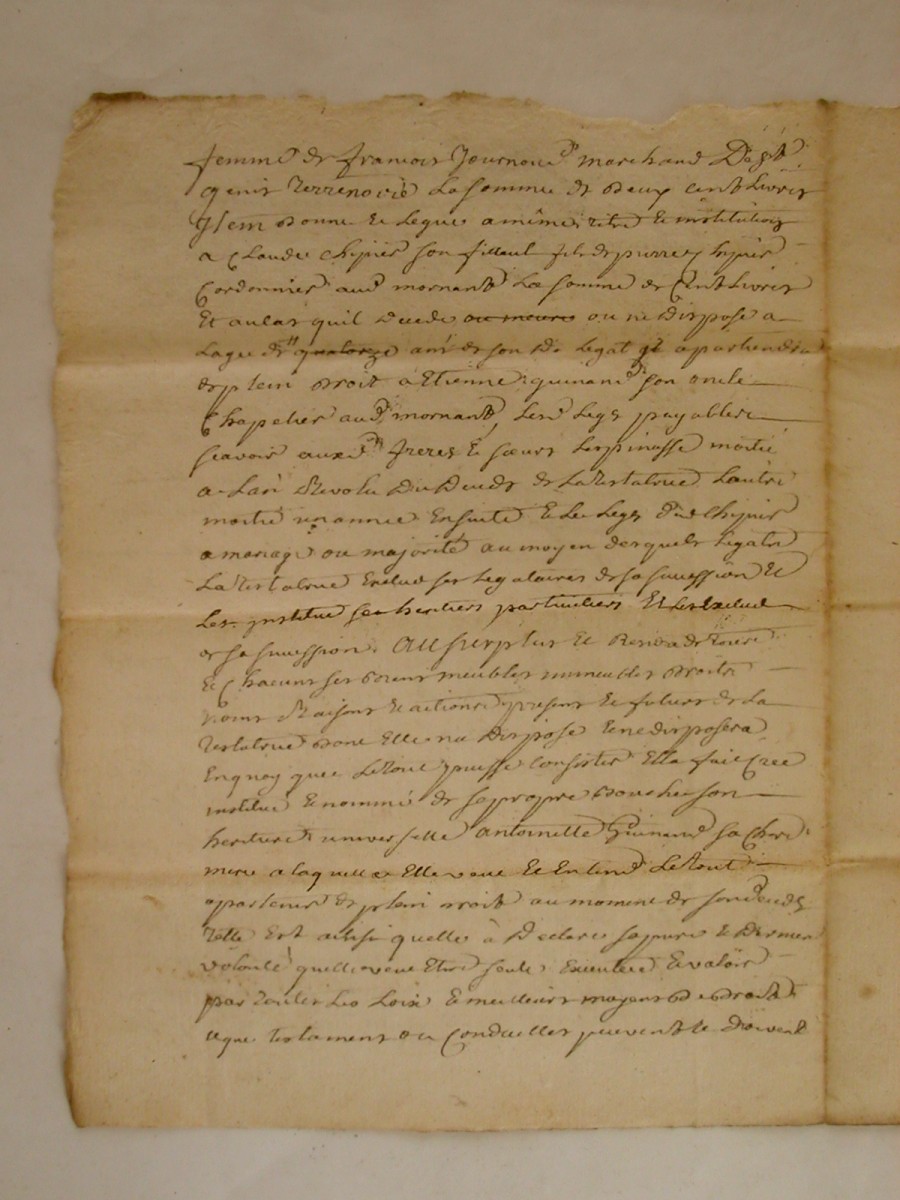 femme de francois Journoud marchand De St
genis terrenoire La somme de deux cent Livres
Item donne et Legue a même titre et institution
a Claude chipier son filleul fils de pierre chipier
Cordonnier aud mornant La somme de Cent Livres
Et au cas quil decede ou meure ou ne Dispose a
Lage de quatorze ans de son Dit Legat il apartiendra
de plein droit a Etienne guinand son oncle
Chapelier aud mornant, Lesd Legs payables
scavoir auxds freres et sœurs Lespinasse moitié
a Lan Revolu Du Deceds de La Testatrice Lautre
moitié une année Ensuite Et Le Legs dud chipier
a mariage ou majorité au moyen desquels Legats
La Testatrice Exclud ses Legataires de sa succession Et
Les institue ses heritiers particuliers Et Les Exclud
de sa succession. Au surplus Et Residu de tous
Et Chacuns ses biens meubles immeubles droits
noms Raisons Et actions presents Et futurs de La
Testatrice dont Elle na Disposé Et ne disposera
En quoy que Le tout puisse Consister Elle fait Crée
institue Et nomme de sa propre bouche son
heritiere universelle antoinette Guinand sa chere
mere a laquelle Elle veut Et Entend Le tout
apartenir de plein droit au moment de son deceds
telle Est ainsi quelle à Declaré sa pure Et Derniere
volonté quelle veut Etre seule Executée Et valoir
par toutes Les Loix Et meilleurs moyens de droit
que testament ou Codicilles peuvent et doivent